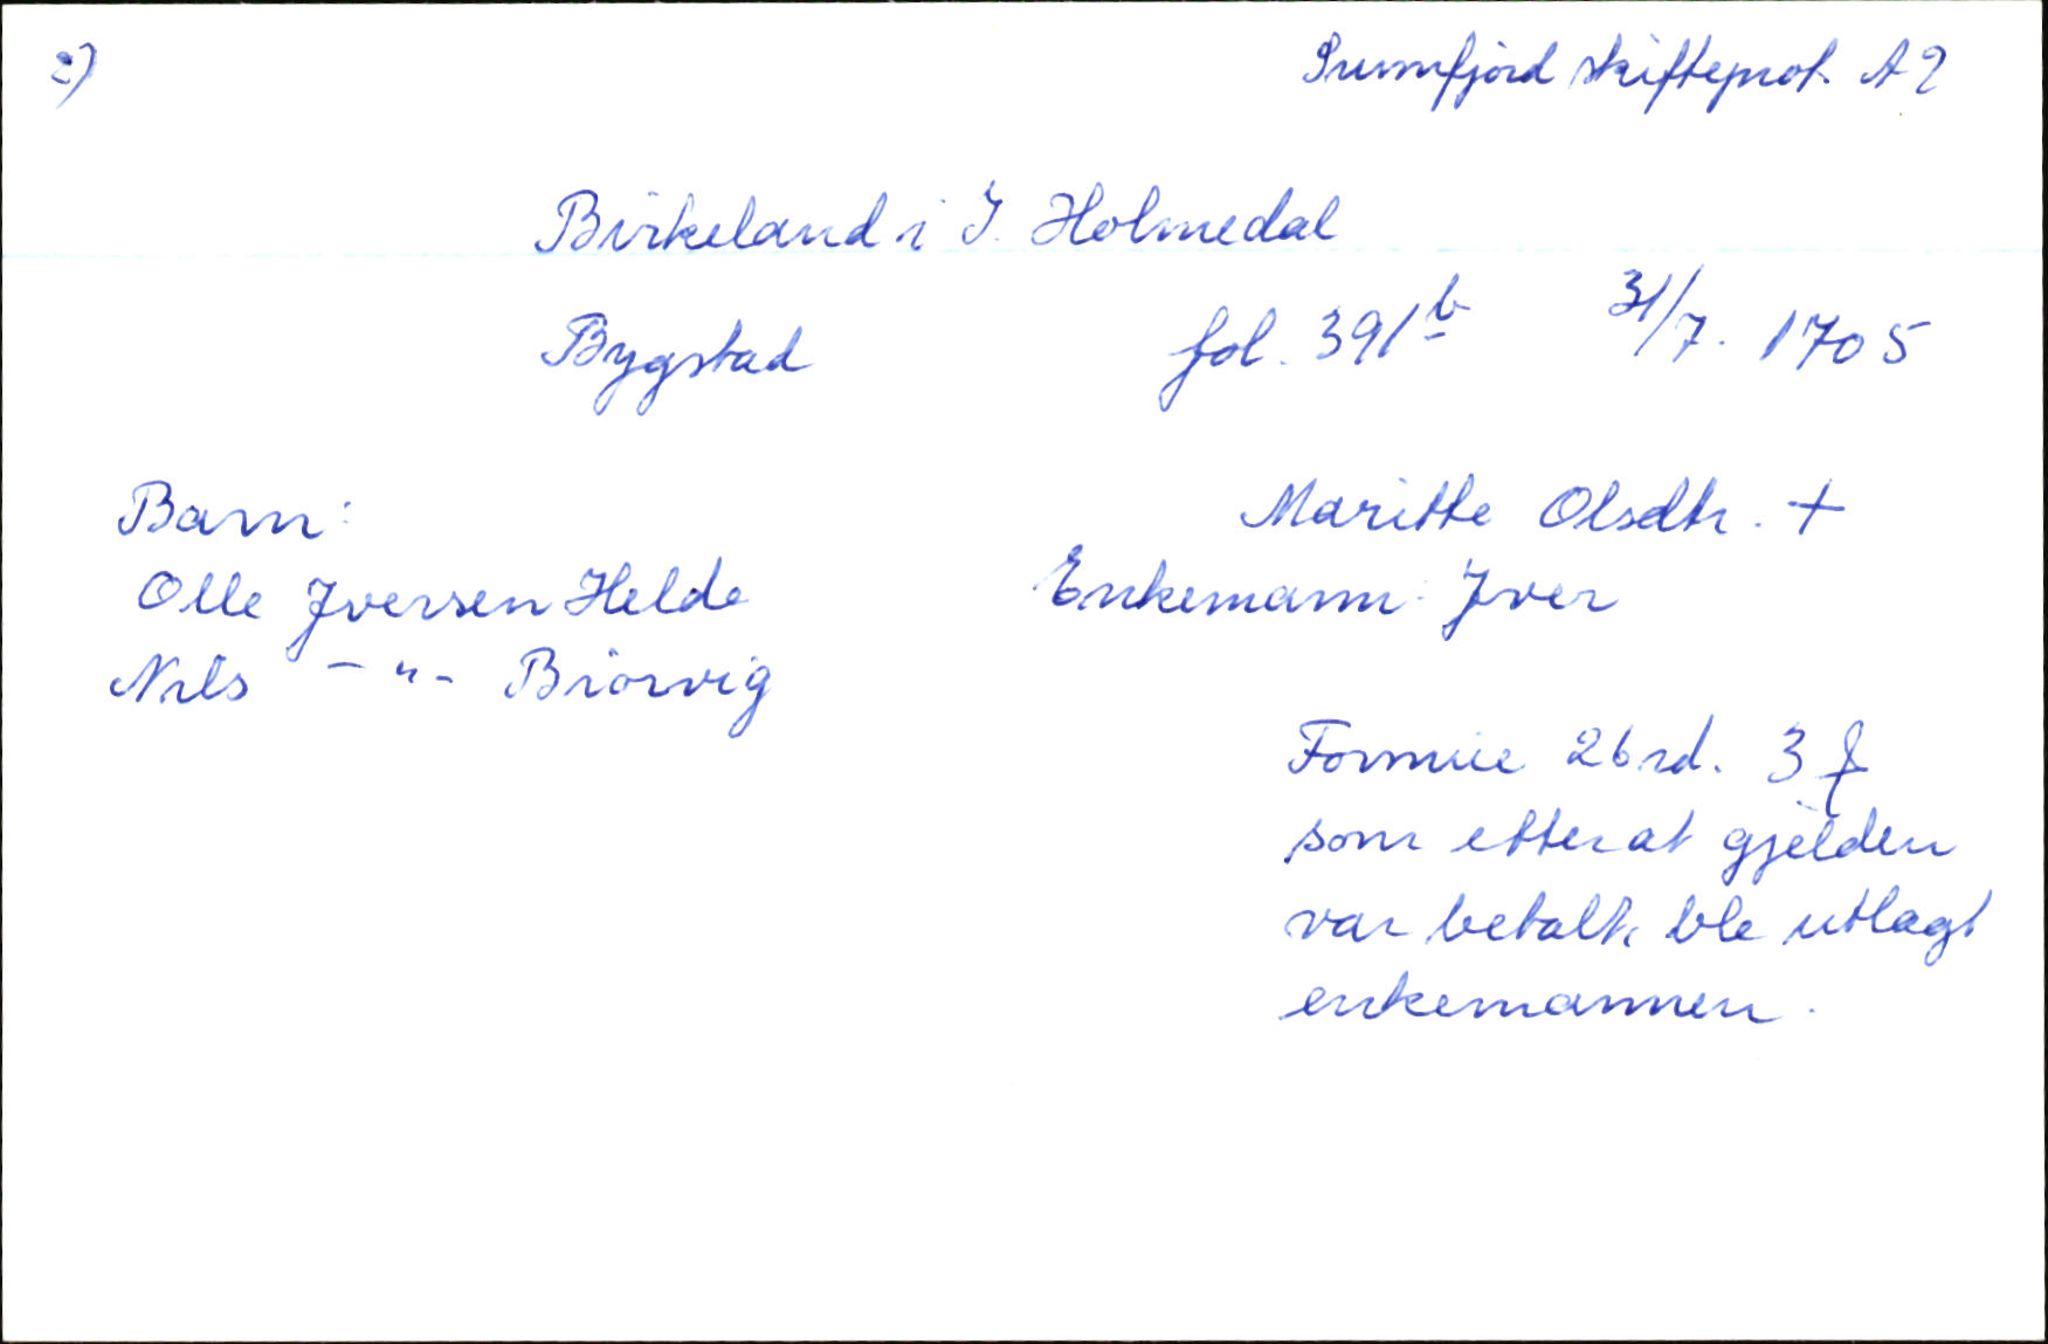 2) Sunnfjord skifteprot. A 2
Birkeland i I. Holmedal
Bygstad fol. 391b 31/7. 1705
Barn: Maritte Olsdtr. +
Olle Jversen Helde Enkemann: Jver
Nils -"- Biorvig
Formue 26 rd. 3
som etter at gjelden
var betalt, ble utlagt
enkemannen.